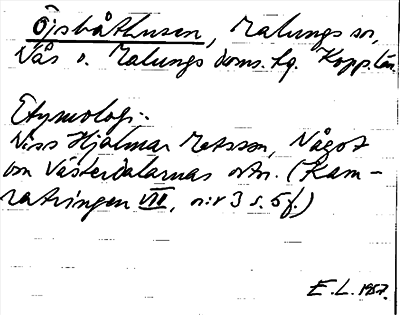 Öjsbåthusen, Malungs sn,
Nås o. Malungs doms. hg. Kopp. län.
Etymologi:
Niss Hjalmar Matsson, Något
om Västerdalarnas ortn. (Kam-
ratringen VIII, n:r 3 s. 5 f.)
E. L. 1957.